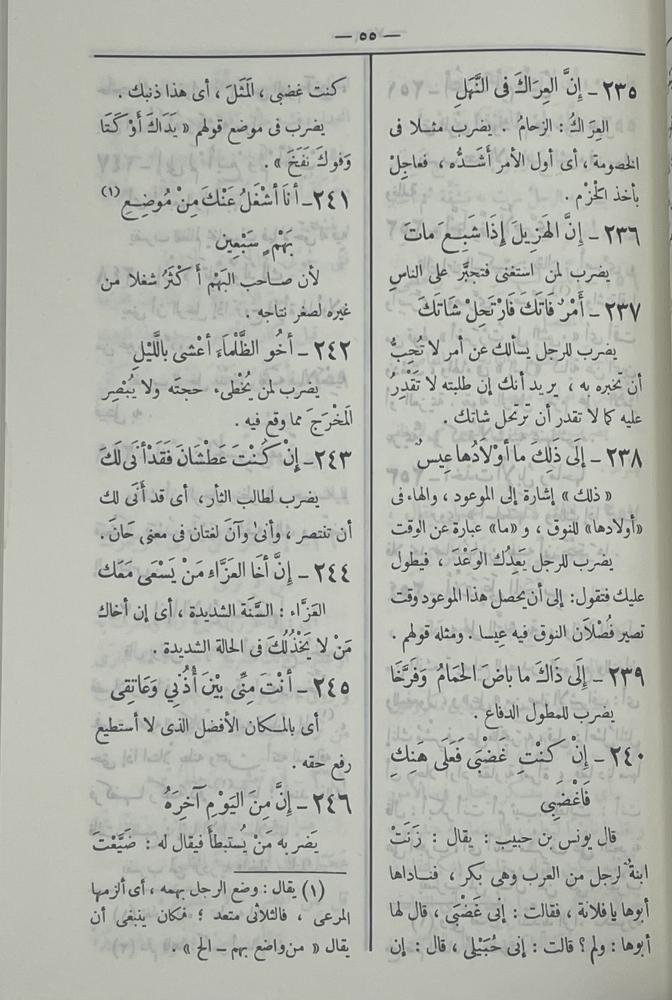 — ٥٥ —
٢٣٥ ـ إِنَّ العِرَاكَ فى النَّهَلِ
العِرَاكُ : الزحامُ . يضرب مثلا فى
الخصومة ، أى أول الأمر أَشَدُّه ، فعاجِلْ
بأخذ الحْزم .
٢٣٦ ـ إِنَّ الهَزِيلَ إِذَا شَبِعَ مَاتَ
يضرب لمن استغنى فتجبَّر على الناسِ
٢٣٧ ـ أَمْرٌ فَاتَكَ فَارْتَحِلْ شَاتَكَ
يضرب للرجل يسألك عن أمر لا تُحِبُّ
أن تخبره به ، يريد أنك إن طلبته لا تَقْدِرُ
عليه كما لا تقدر أن تَرْتحل شاتك .
٢٣٨ ـ إِلَى ذَلِكَ مَا أَوْلَادُهَا عِيسٌ
« ذلك » إشارة إلى الموعود ، والهاء فى
«أولادها» للنوق ، و «ما» عبارة عن الوقت
يضرب للرجل يَعِدُك الوَعْدَ ، فيطول
عليك فتقول: إلى أن يحصل هذا الموعود وقت
تصير فُصْلَان النوق فيه عِيسا . ومثله قولهم .
٢٣٩ ـ إِلَى ذَاكَ مَا باضَ الحَمَامُ وَفَرَّخَا
يضرب للمطول الدفاع .
٢٤٠ ـ إِنْ كُنْتِ غَضْبَى فَعَلَى هَنِكِ
فَاغْضَبِي
قال يونس بن حبيب : يقال : زَنَتْ
ابنةٌ لرجل من العرب وهى بكر ، فناداها
أبوها يا فلانة ، فقالت : إنى غَضْبَى ، قال لها
أبوها : ولم ؟ قالت : إنى حُبَيْلَى ، قال : إن
كنت غضبى ، المَثَلَ ، أى هذا ذنبك .
يضرب فى موضع قولهم « يَدَاكَ أَوْكَتَا
وَفوكَ نَفَخَ » .
٢٤١ ـ أنَا أَشْغَلُ عَنْكَ مِنْ مُوضِعِ (١)
بَهْمٍ سَبْعِين
لأن صاحب البَهْم أكْثَرُ شغلا من
غيره لصغر نتاجه .
٢٤٢ ـ أخُو الظَّلْمَاءِ أَعْشى بِاللَّيْلِ
يضرب لمن يُخْطِىء حجتَه ولا يُبْصِر
المَخْرَجَ مما وقع فيه .
٢٤٣ ـ إِنْ كُنْتَ عَطْشَانَ فَقَدْ أَنَى لَكَ
يضرب لطالب الثأر، أى قد أَنَى لك
أن تنتصر ، وأنىٰ وآنَ لغتان فى معنى حَانَ .
٢٤٤ ـ إِنَّ أَخَا العَزَّاءِ مَنْ يَسْعَى مَعَك
العَزَّاء : السَّنَة الشديدة ، أى إن أخاك
مَنْ لا يَخْذُلُكَ فى الحالة الشديدة .
٢٤٥ ـ أَنْتَ مِنِّى بَيْنَ أُذُنِي وَعَاتِقِى
أى بالمكان الأفضل الذى لا أستطيع
رفع حقه .
٢٤٦ ـ إِنَّ مِنَ اليَوْمِ آخِرَهُ
يَضرِبه مَنْ يُستبطأ فيقال له : ضَيَّعْتَ
(١) يقال : وضع الرجل بهمه ، أى ألزمها
المرعى ، فالثلاثى متعد ؛ فكان ينبغى أن
يقال « من واضع بهم ـ الخ » .